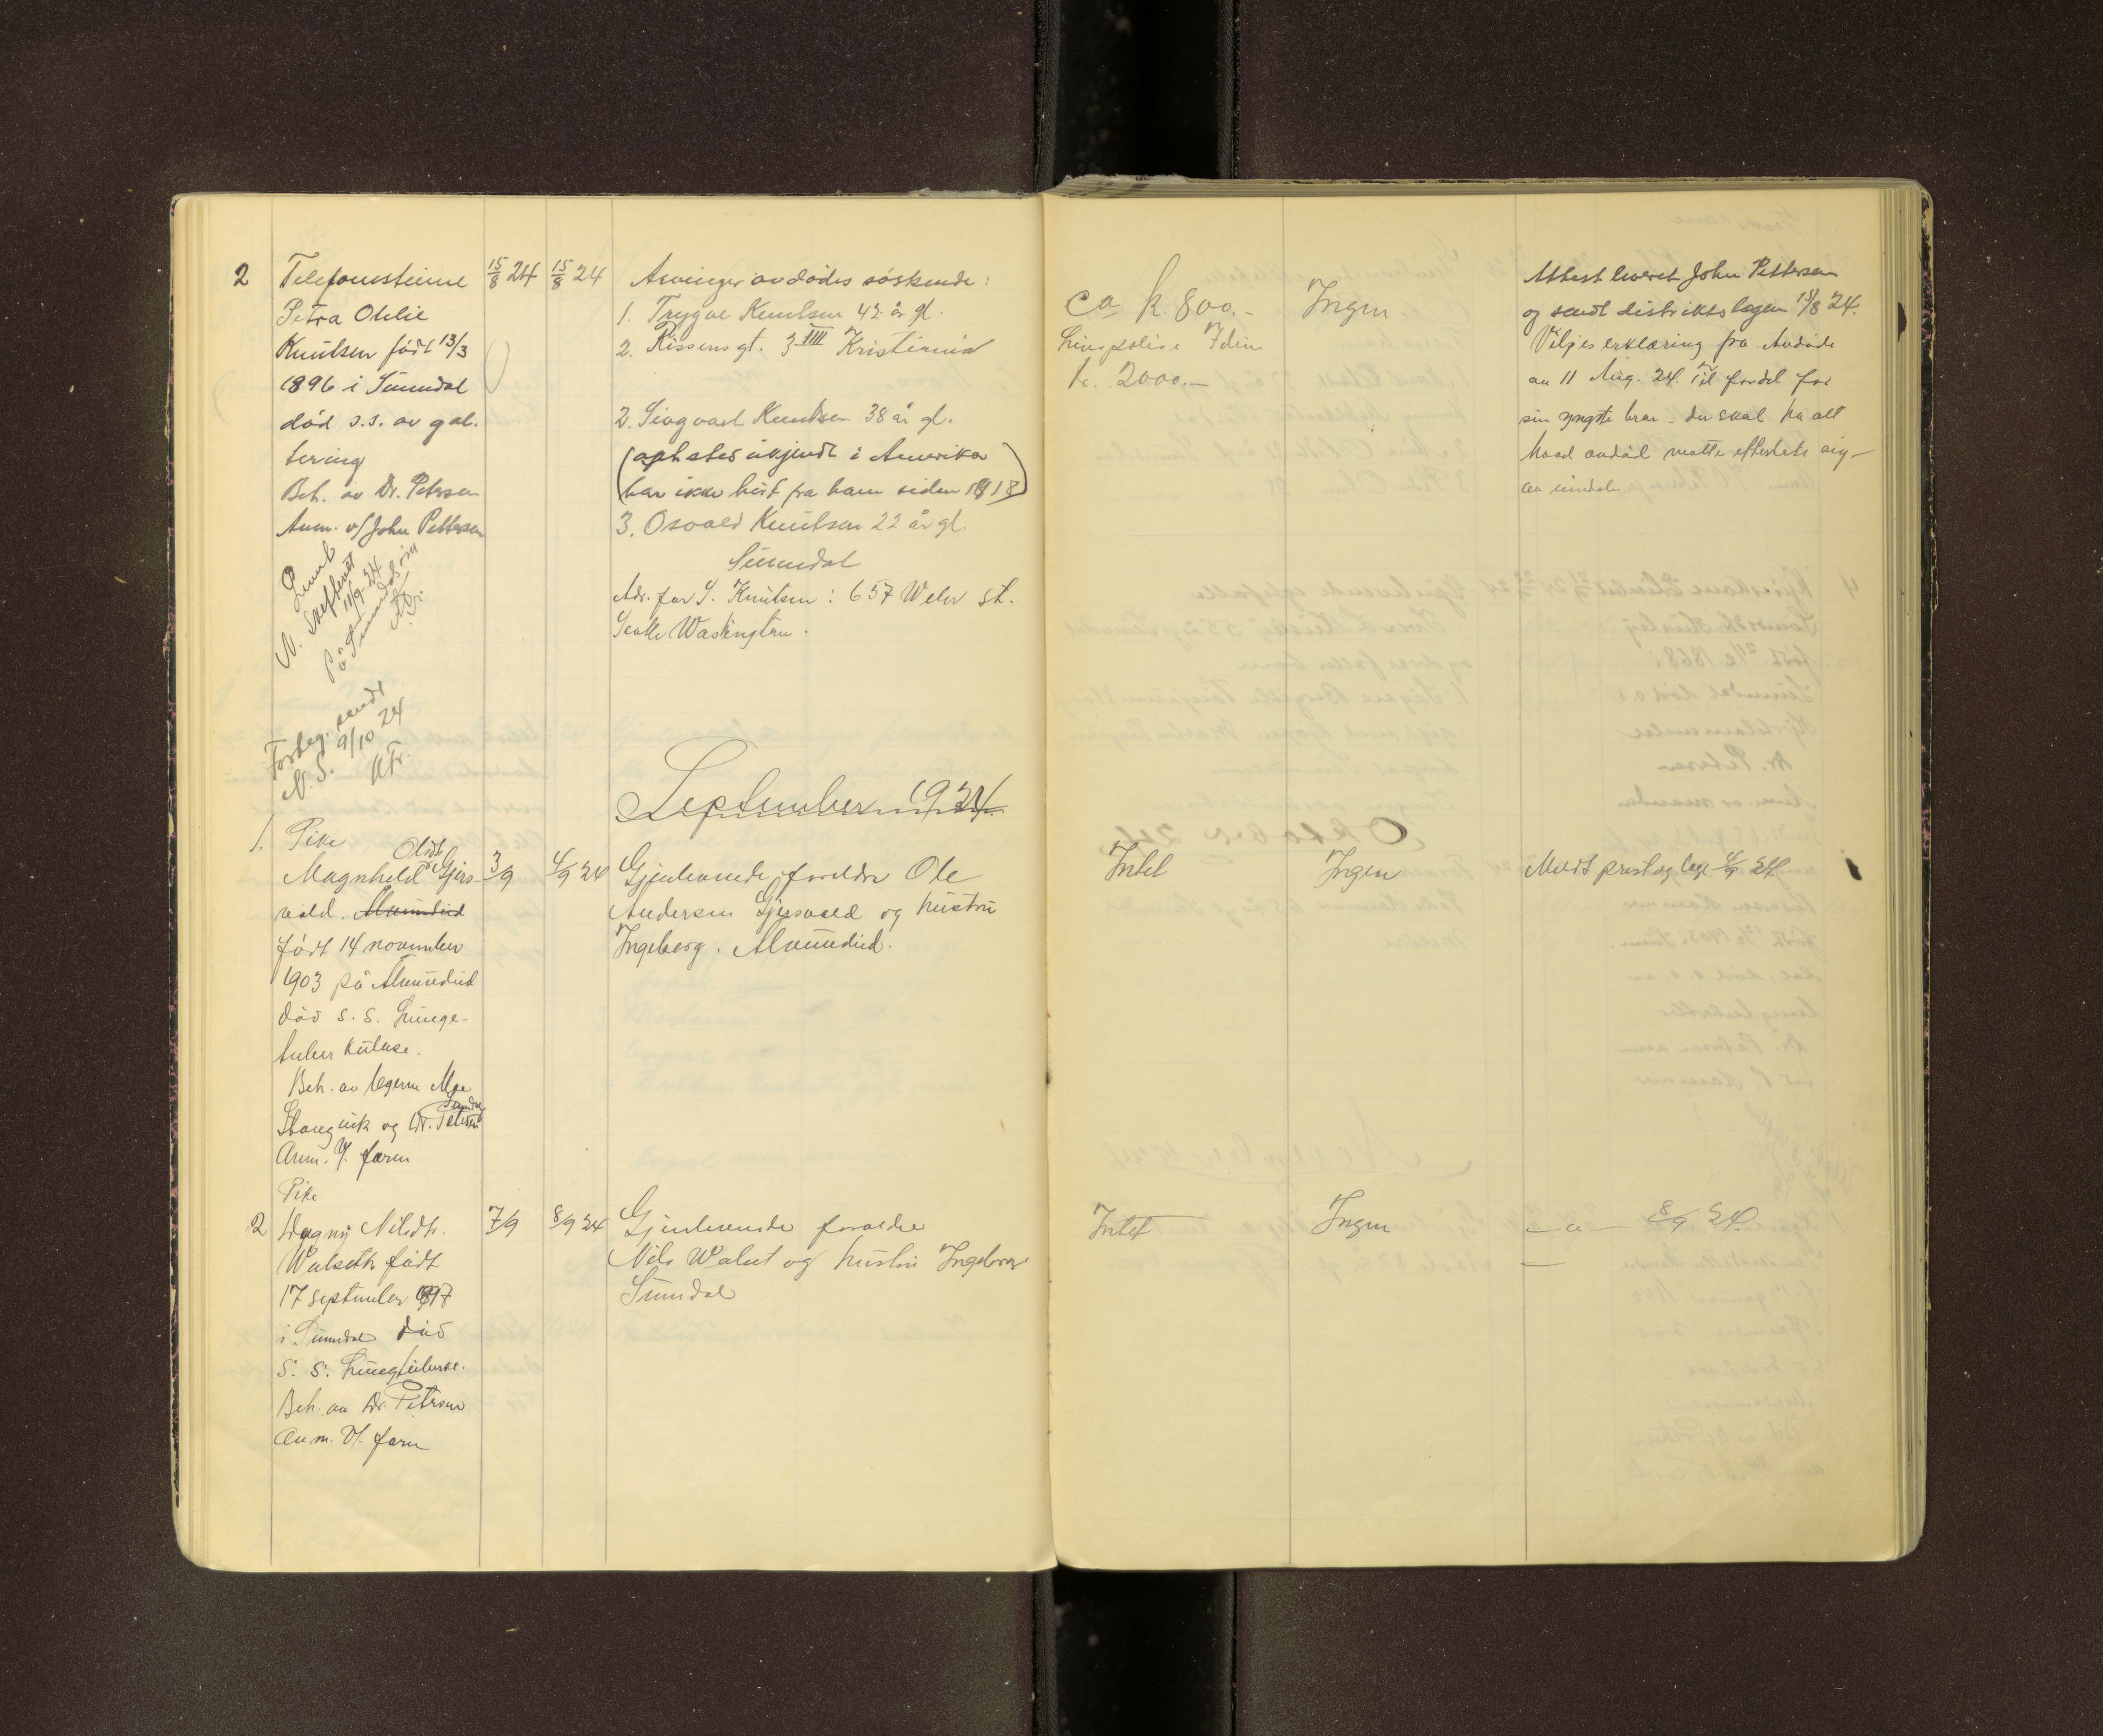 2
Telefonistinne
Petra Otelie
Knutsen født 13/3
1896 i Sunndal
død s.s. av gal.
tering
Beh. av Dr. Petersen
Anm. v/ John Pettersen
15/8 24
15/8 24
Arvinger avdødes søskende:
1. Trygve Knutsen 42 år gl.
2. Rissensgt. 3 IIII Kristiania
2. Sigvart Knutsen 38 år gl.
(opholdes ukjendt i Amerika
har ikke hørt fra ham siden 1918)
3. Osvald Knutsen 22 år gl.
Sunndal
Adr. for S. Knutsen: 657 Weler st.
Seatle Washington.
ca k. 800.-
Livspolise Idun
kr. 2000.-
Ingen
Attest leveret John Pettersen
og sendt distriktslægen 15/8 24.
Viljeserklæring fra Avdøde
av 11 Aug. 24. Til fordel for
sin yngste bror - der skal ha alt
hvad avdød måtte efterlate sig -
av eiendele
N. Skifteret
11/9-24
på Sunndalsøra
Forteg. sendt
N. S. 9/10 24
September 1924.
1.
Pike
Magnhild Olidt Gjers-
vold. Ålvundeid
født 14 november
1903 på Ålvundeid
død s. s. Lunge-
tuberkulose.
Beh. av lægerne Moe
Stangvik og Dr. Petersen Sundal
Anm. v/ faren
3/9
4/9 24
Gjenlevende foreldre Ole
Andersen Gjersvold og hustru
Ingeborg. Ålvundeid.
Intet
Ingen
Meldt prest og læge 4/9 24
Pike
2
Dagny Nilsdtr.
Walseth født
17 september 1897
i Sunndal død
s. s. Lungtuberkl.
Beh. av Dr. Petersen
Anm. v/. faren
7/9
8/9 24
Gjenlevende forældre
Nils Walset og hustru Ingeborg
Sunndal
Intet
Ingen
— a — 8/9 24.